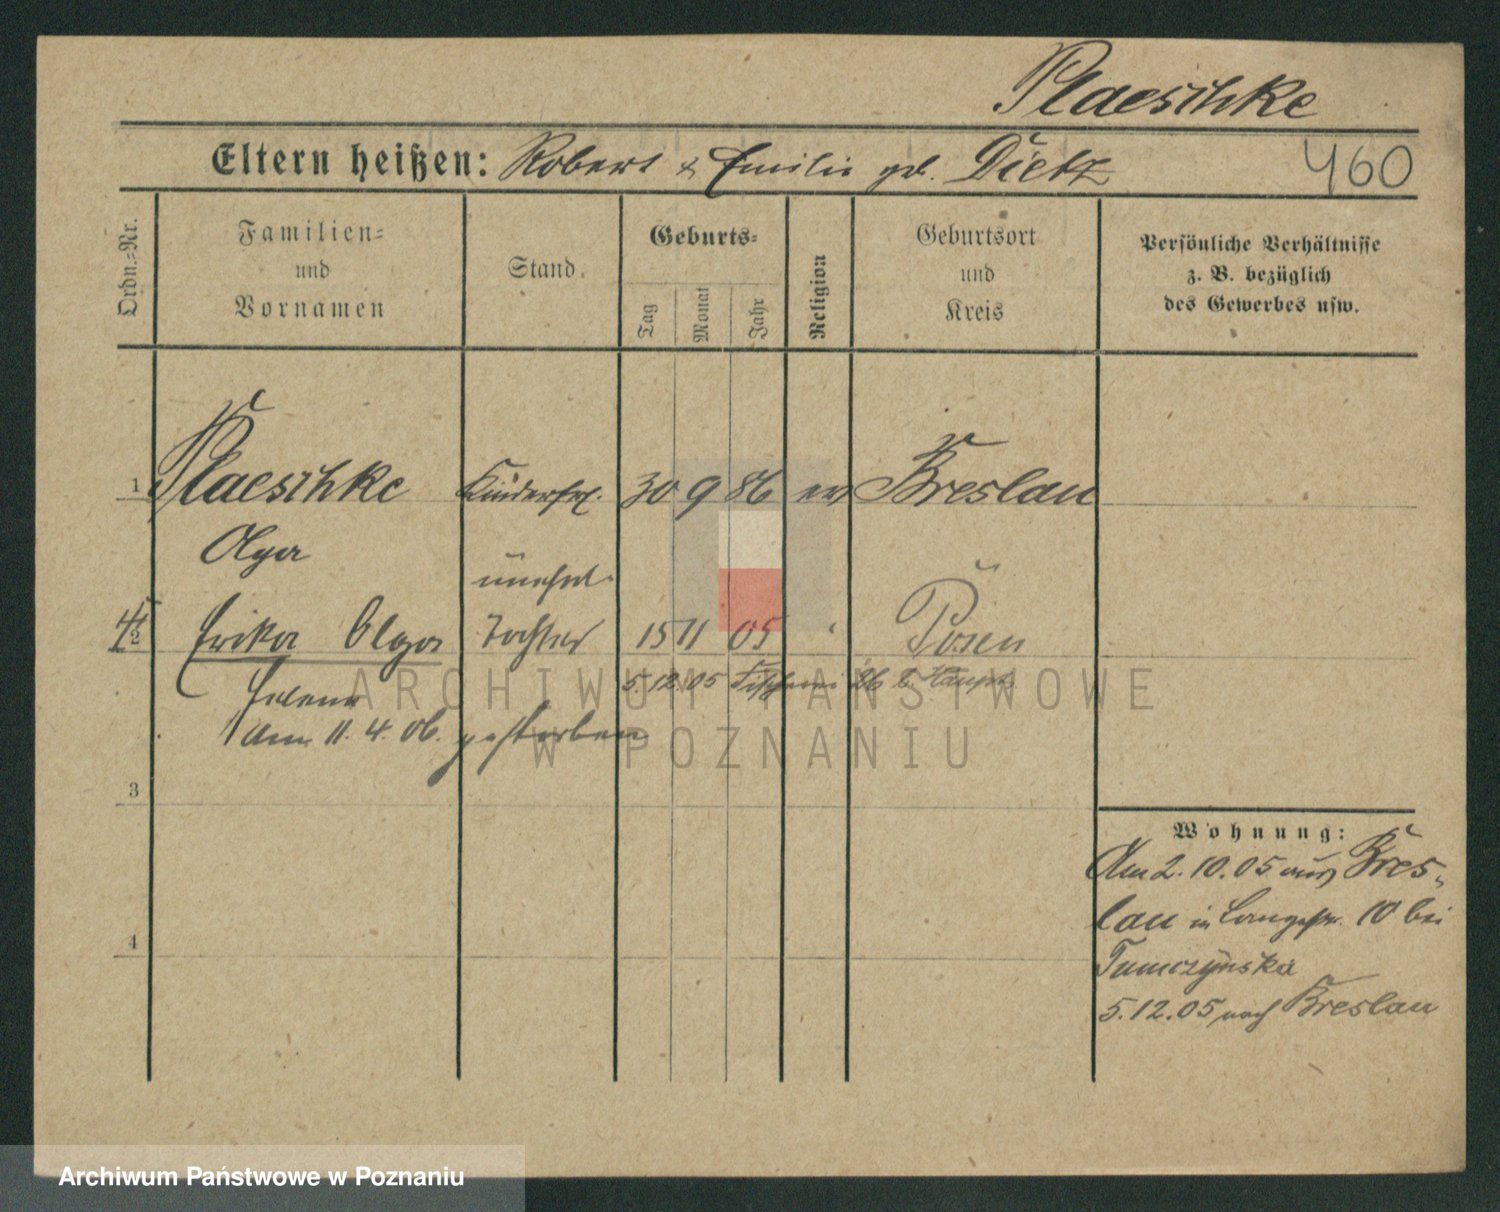 Plaeschke
Eltern heißen: Robert & Emilie geb. Dietz 460
Ordn.=Nr.
Familien=
und
Vornamen
Stand.
Geburts=
Tag
Monat
Jahr
Religion
Geburtsort
und
Kreis
Persönliche Verhältnisse
z. B. bezüglich
des Gewerbes usw.
1 Plaeschke Kinderfrl. 30 9 86 ev Breslau
Olga
unehel.
2 Erika Olga Tochter 15 11 05 " Posen
Helene 5.12.05 Fischerei 26 b. Haupt
Am 11. 4. 06. gestorben
3
4
Wohnung:
Am 2. 10. 05 aus Bres-
lau in Langestr. 10 bei
Tumczynska
5.12.05 nach Breslau
ARCHIWUM PAŃSTWOWE
W POZNANIU
Archiwum Państwowe w Poznaniu